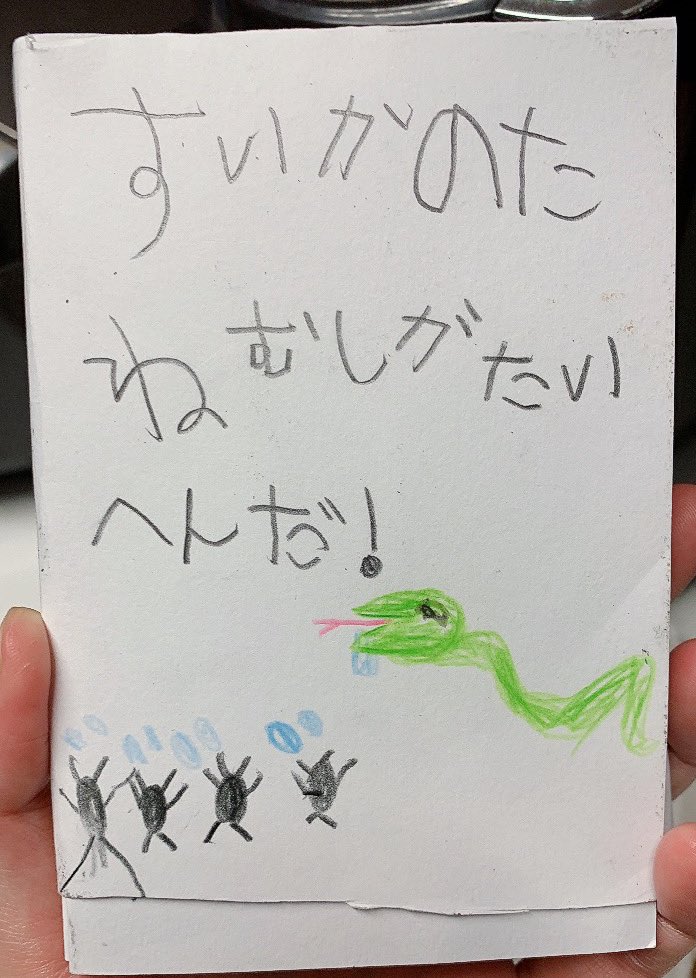 すいかのた
ねむしがたい
へんだ！